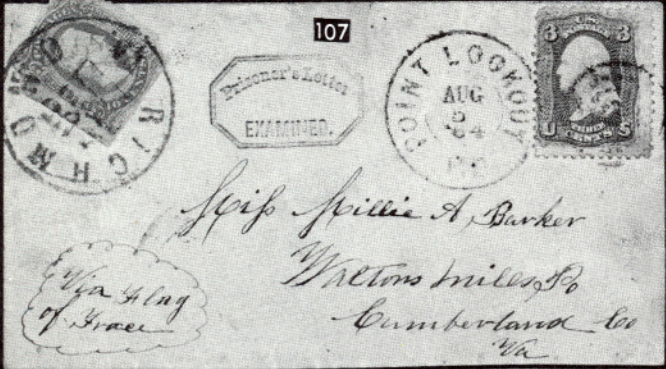 107
RICHMOND
Prisoner's Letter
EXAMINED.
POINT LOOKOUT
AUG
5
'64
3 3
U S
CENTS
Miss Millie A. Barker
Waltons Mills, Po
Cumberland Co
Va
Via Flag
of Truce